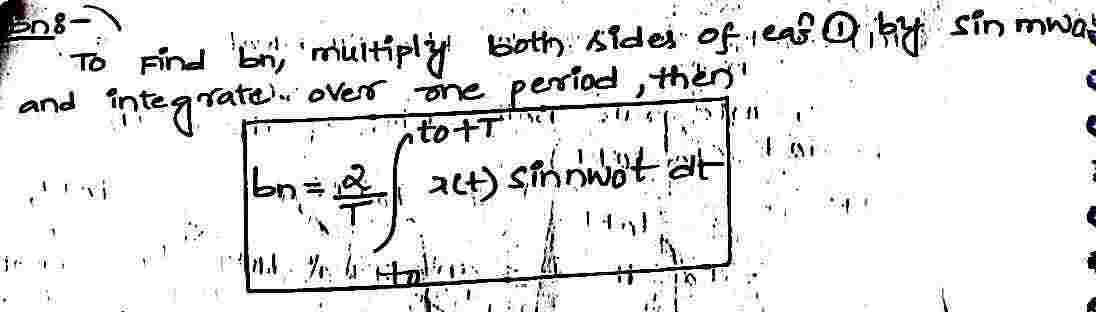 bn:-
To Find bn, multiply both sides of eqn ① by sin mwo
and integrate over one period, then
bn = 2/T ∫ to+T to x(t) sin nwot dt